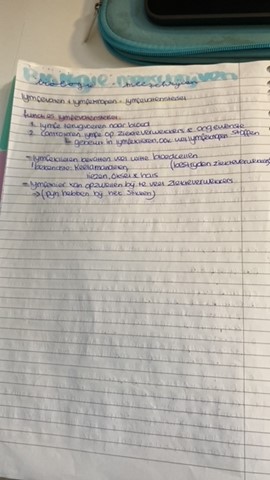 lymfevaten + lymfeknopen = lymfevatenstelsel
functies lymfevatenstelsel:
1. lymfe terugvoeren naar bloed
2. controleren lymfe op ziekteverwekkers & ongewenste stoffen
↳ gebeurt in lymfeklieren ook wel lymfeknopen
→ lymfeklieren bevatten veel witte bloedcellen
(bestrijden ziekteverwekkers)
keelamandelen,
liezen, oksel & hals
→ lymfeklier kan opzwellen bij te veel ziekteverwekkers
→ (pijn hebben bij het slikken)